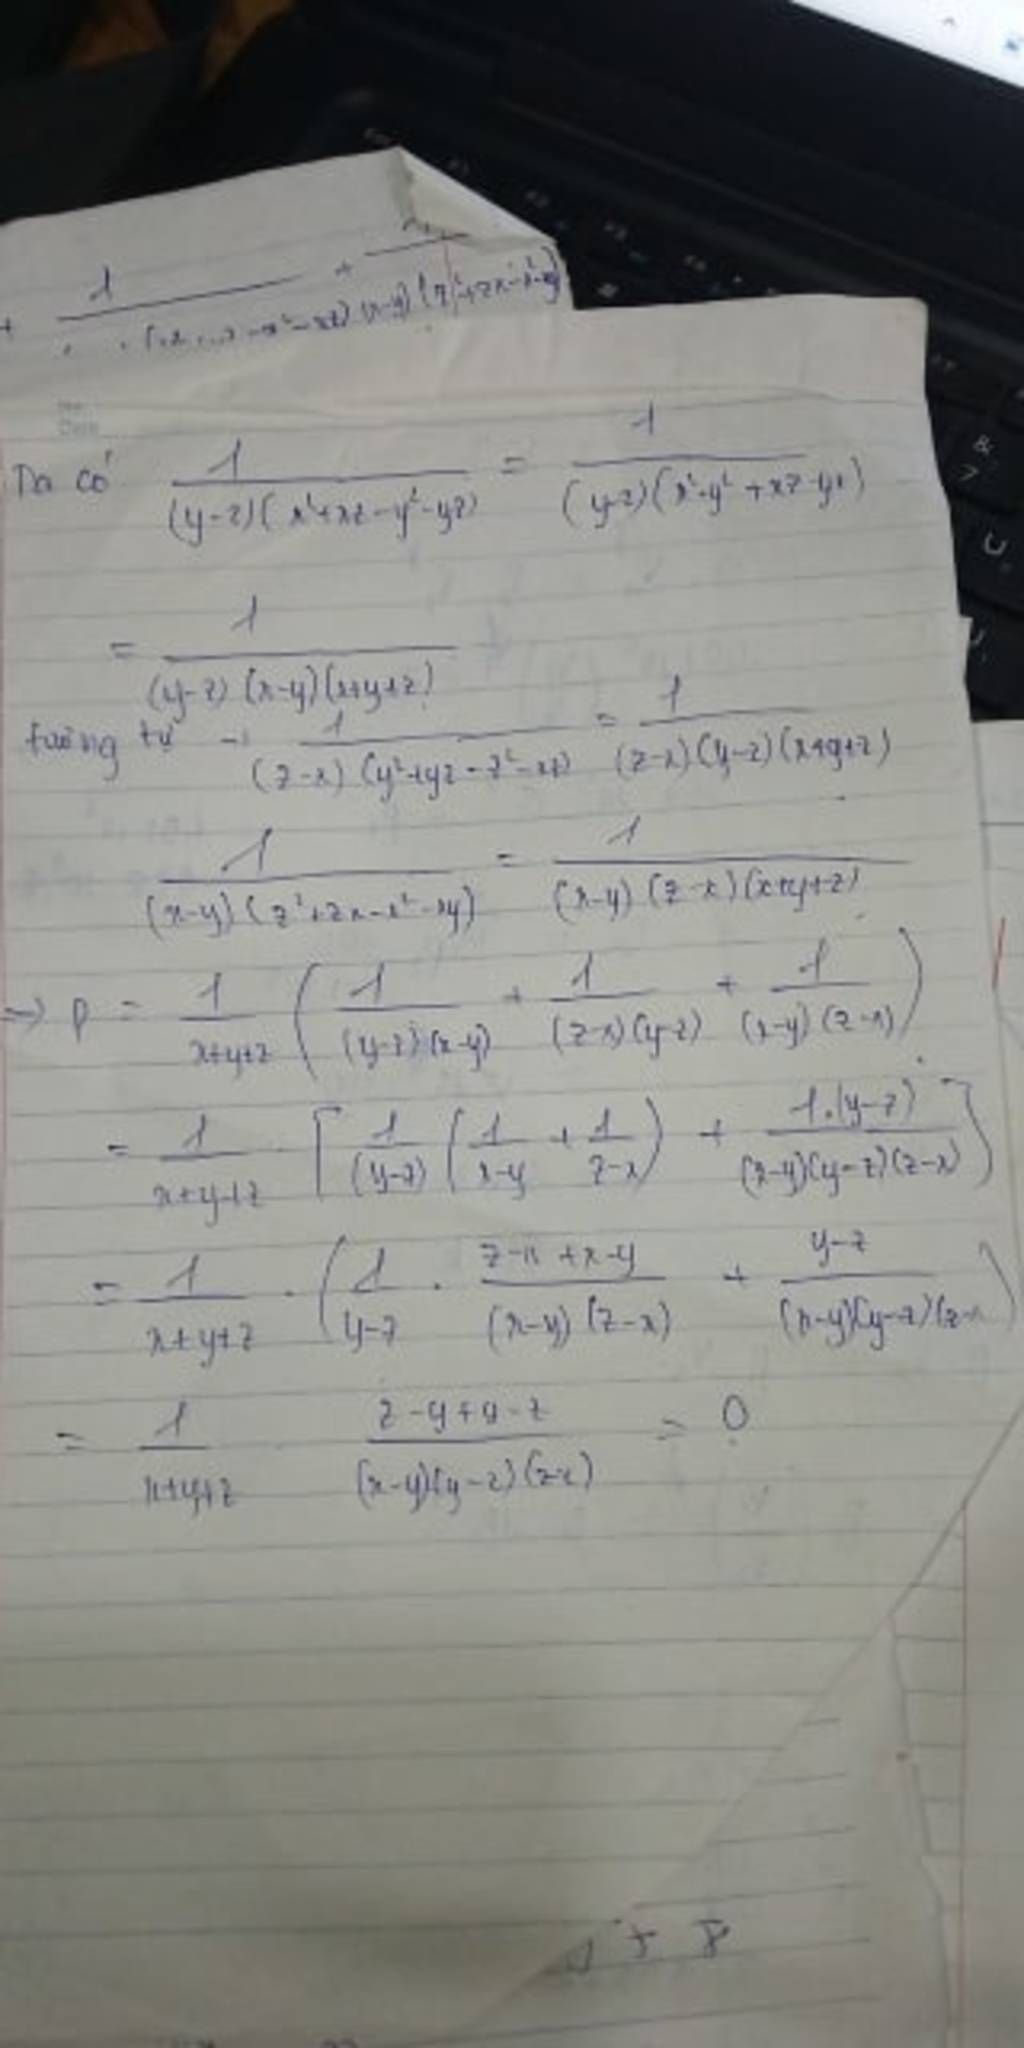 + 1 / ( ... - x² - xz) + / (x-y)(z²+zx-x²-xy)
Ta có 1/((y-z)(x²+xz-y²-yz)) = 1/((y-z)(x²-y²+xz-yz))
= 1/((y-z)(x-y)(x+y+z))
tương tự → 1/((z-x)(y²+yz-z²-xz)) = 1/((z-x)(y-z)(x+y+z))
1/((x-y)(z²+zx-x²-xy)) = 1/((x-y)(z-x)(x+y+z))
=> P = 1/(x+y+z) (1/((y-z)(x-y)) + 1/((z-x)(y-z)) + 1/((x-y)(z-x)))
= 1/(x+y+z) · [1/(y-z) (1/(x-y) + 1/(z-x)) + 1.(y-z)/((x-y)(y-z)(z-x))]
= 1/(x+y+z) · (1/(y-z) · (z-x+x-y)/((x-y)(z-x)) + (y-z)/((x-y)(y-z)(z-x)))
= 1/(x+y+z) (z-y+y-z)/((x-y)(y-z)(z-x)) = 0